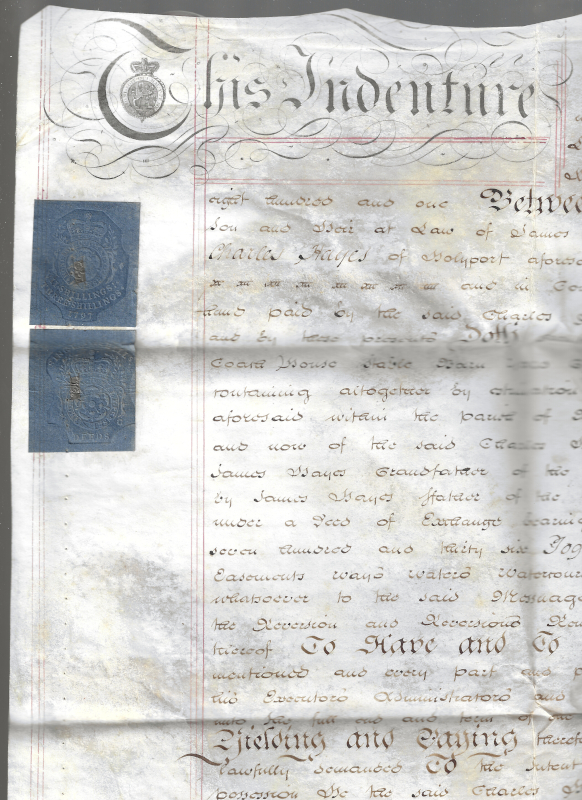 This Indenture
eight hundred and one Betwee
Son and Heir at Law of James
Charles Hayes of Holyport afores
and in Co
hand paid by the said Charles
and by these presents Doth
Coach House Stable Barn
containing altogether by
aforesaid within the parish of
and now of the said Charles
James Hayes Grandfather of the
by James Hayes father of the
under a Deed of Exchange bearin
seven hundred and thirty six Tog
Easements ways waters Watercour
whatsoever to the said Messuag
the Reversion and Reversions Rem
thereof To Have and To
mentioned and every part and p
his Executors Administrators and
unto the full end and term of
Yielding and Paying therefo
lawfully demanded To the Intent
possession the said Charles
SHILLINGS
SHILLINGS